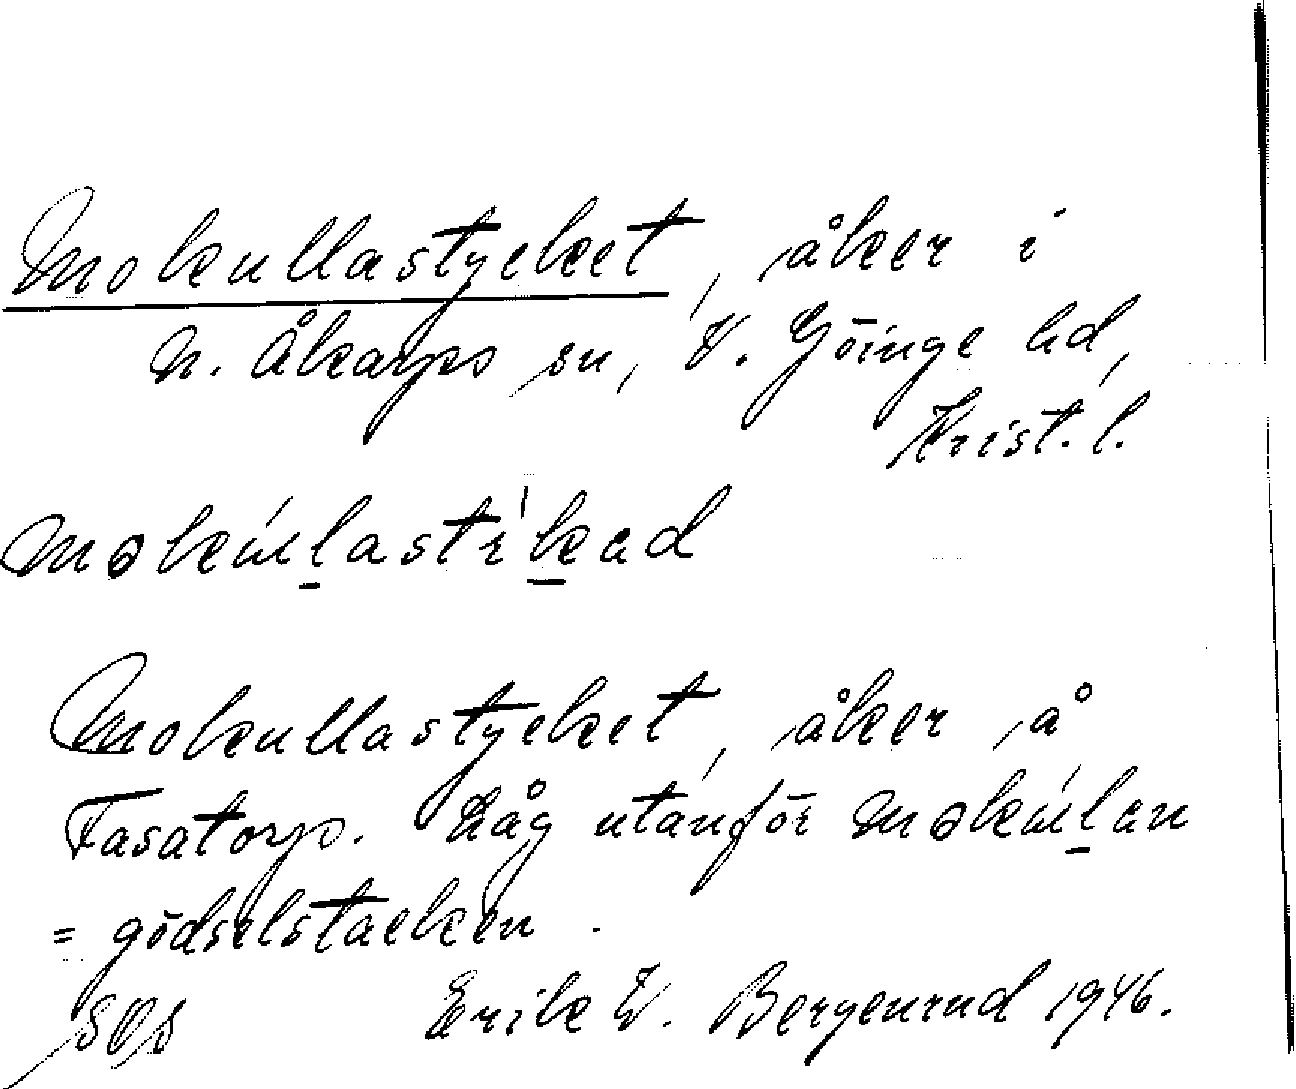 Mokullastycket, åker i
N. Åkarps sn, V. Göinge hd,
Krist. l.
mokúllastỳkəd
Mokullastycket, åker å
Fasatorp. Låg utanför mokúlan
= gödselstacken.
Erik W. Bergenrud 1946.